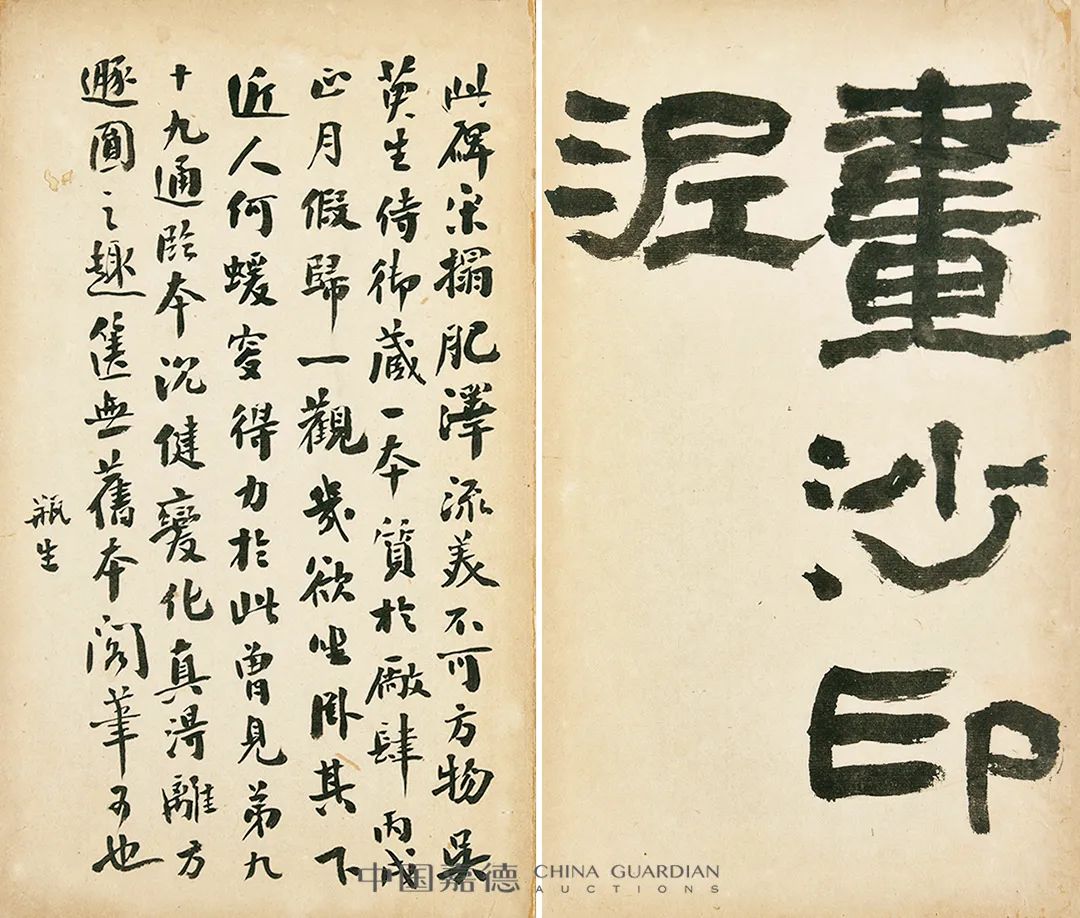 畫沙印
泥
此碑宋搨肥澤流美不可方物吳
荑生侍御藏一本質於廠肆丙戌
正月假歸一觀幾欲坐臥其下
近人何蝯叟得力於此曾見弟九
十九通臨本沉健變化真得離方
遯圓之趣舊無舊本閣筆可也
瓶生
中国嘉德 CHINA GUARDIAN
AUCTIONS